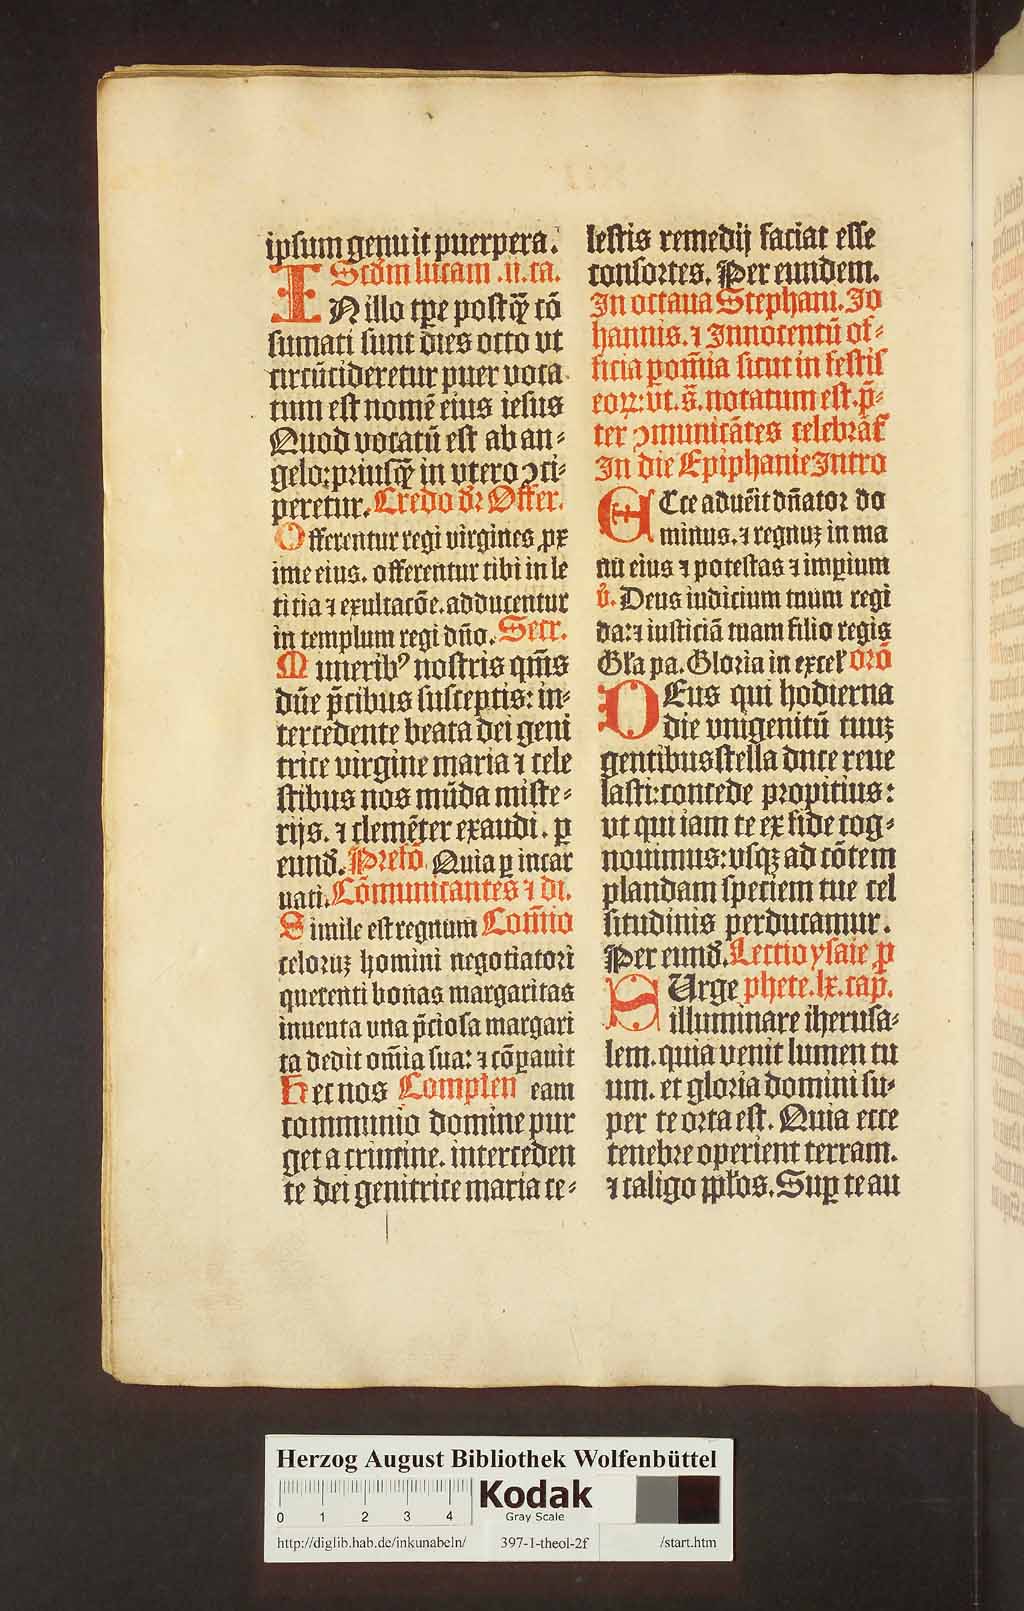 ipsum genuit puerpera.
Scd̄m lucam .ii. ca.
IN illo tꝑe postq̄ȝ cō
sumati sunt dies octo vt
circūcideretur puer voca
tum est nomē eius iesus
Quod vocatū est ab an-
gelo: priusq̄ȝ in vtero ↄci-
peretur. Credo dr̄ Offer.
Offerentur regi virgines ꝓx
ime eius. offerentur tibi in le
titia ⁊ exultacōe. adducentur
in templum regi dn̄o. Secr.
Muneribꝰ nostris qm̄s
dn̄e p̄cibus susceptis: in-
tercedente beata dei geni
trice virgine maria ⁊ cele
stibus nos mūda miste-
rijs. ⁊ clemēter exaudi. ꝑ
eund̄. Prefō Quia ꝑ incar
nati. Cōmunicantes ⁊ di.
Simile est regnum Com̄io
celoruȝ homini negotiatori
querenti bonas margaritas
inuenta vna p̄ciosa margari
ta dedit om̄ia sua: ⁊ cōꝑauit
Hec nos Complen eam
communio domine pur
get a crimine. interceden
te dei genitrice maria ce-
lestis remedij faciat esse
consortes. Per eundem.
In octaua Stephani. Jo
hannis. ⁊ Innocentū of-
ficia ꝑom̄ia sicut in festis
eoꝝ: vt. s̄. notatum est. p̄-
ter ↄmunicātes celebrāt
In die Epiphanie Intro
ECce aduēit dn̄ator do
minus. ⁊ regnuȝ in ma
nū eius ⁊ potestas ⁊ imꝑium
v̄. Deus iudicium tuum regi
da: ⁊ iusticiā tuam filio regis
Gl̄a pa. Gloria in excel̄ orō
DEus qui hodierna
die vnigenitū tuuȝ
gentibus stella duce reue
lasti: concede propitius:
vt qui iam te ex fide cog-
nouimus: vsqȝ ad cōtem
plandam speciem tue cel
situdinis perducamur.
Per eund̄. Lectio ysaie ꝓ
SUrge phete. lx. cap.
illuminare iherusa-
lem. quia venit lumen tu
um. et gloria domini su-
per te orta est. Quia ecce
tenebre operient terram.
⁊ caligo ppl̄os. Suꝑ te au
Herzog August Bibliothek Wolfenbüttel
0 1 2 3 4
Kodak
Gray Scale
http://diglib.hab.de/inkunabeln/ 397-1-theol-2f /start.htm